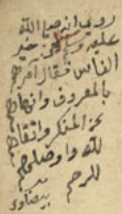 روى انه صلى الله
عليه وسلم سئل عن خير
الناس فقال آمرهم
بالمعروف وانهاهم
عن المنكر واتقاهم
لله واوصلهم
للرحم
بيضاوى